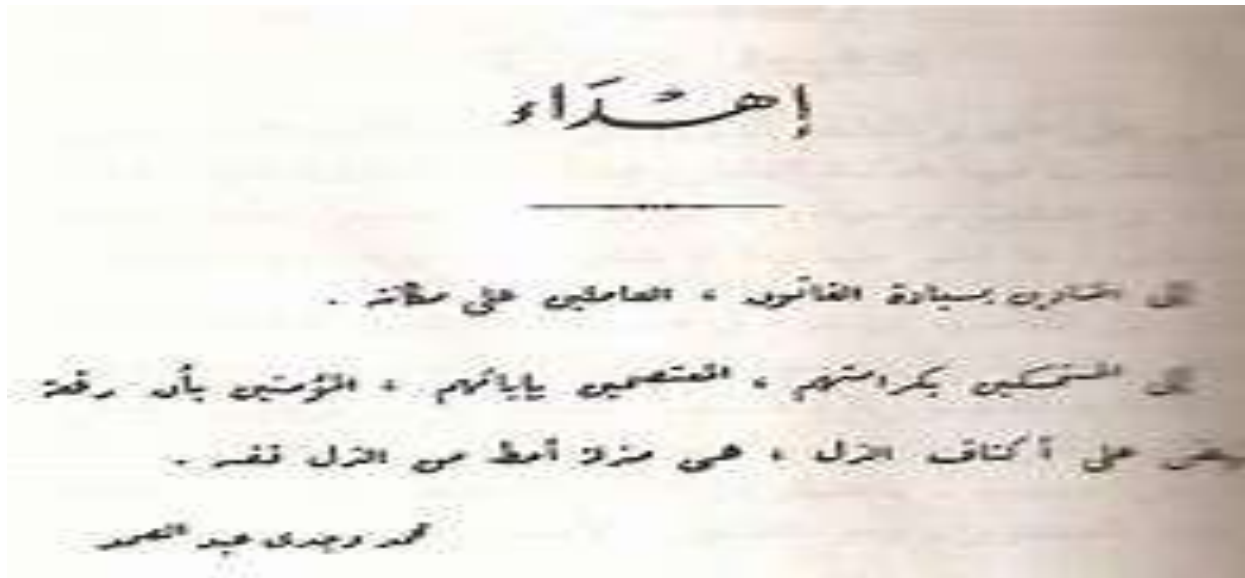 إهْدَاء
إلى المنادين بسيادة القانون ، العاملين على مكانته .
إلى المتمسكين بكرامتهم ، المعتصمين بإبائهم ، المؤمنين بأن رفعة
على أكتاف الذل ، هى منزلة أحط من الذل نفسه .
محمد وجدى عبد الصمد